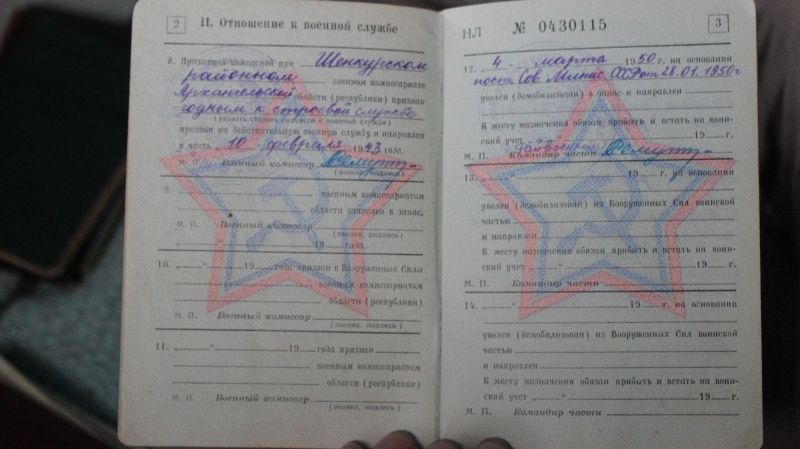 2
II. Отношение к военной службе
8. Призывной комиссией при Шенкурском
районном военным комиссариате
Архангельской области (республики) признан
годным к строевой службе
(указать степень годности к военной службе)
призван на действительную военную службу и направлен
в часть „10" февраля 1943 года.
М. П. Военный комиссар
(звание, подпись)
9. военным комиссариатом
области зачислен в запас.
М. П. Военный комиссар
(звание, подпись)
„ " 19 года.
10. „ " 19 года призван в Вооруженные Силы
военным комиссариатом
области (республики)
М. П. Военный комиссар
(звание, подпись)
11. „ " 19 года призван
военным комиссариатом
области (республики)
М. П. Военный комиссар
(звание, подпись)
НЛ № 0430115
3
12. „4" марта 1950 г. на основании
пост. Сов. Минис. СССР от 28.01.1950 г
уволен (демобилизован) в запас и направлен
К месту назначения обязан прибыть и встать на воин-
ский учет „ " 19 г.
М. П. Командир части
13. „ " 19 г. на основании
уволен (демобилизован) из Вооруженных Сил воинской
частью
и направлен
К месту назначения обязан прибыть и встать на воин-
ский учет „ " 19 г.
М. П. Командир части
14. „ " 19 г. на основании
уволен (демобилизован) из Вооруженных Сил воинской
частью
и направлен
К месту назначения обязан прибыть и встать на воин-
ский учет „ " 19 г.
М. П. Командир части